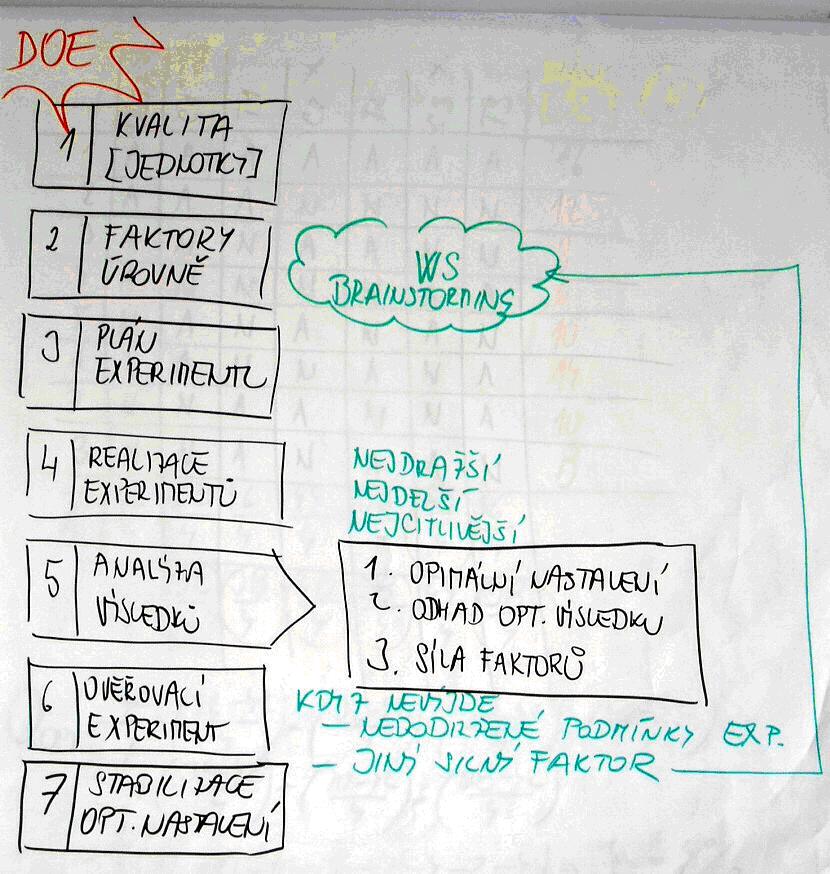 DOE
1 KVALITA
[JEDNOTKY]
2 FAKTORY
ÚROVNĚ
WS
BRAINSTORMING
3 PLÁN
EXPERIMENTŮ
4 REALIZACE
EXPERIMENTŮ
NEJDRAŽŠÍ
NEJDELŠÍ
NEJCITLIVĚJŠÍ
5 ANALÝZA
VÍSLEDKŮ
1. OPIMÁLNÍ NASTALENÍ
2. ODHAD OPT. VÍSLEDKU
3. SÍLA FAKTORŮ
6 OVĚŘOVACÍ
EXPERIMENT
KDYŽ NEVÍJDE
– NEDODRŽENÉ PODMÍNKY EXP.
– JINÝ SILNÝ FAKTOR
7 STABILIZACE
OPT. NASTALENÍ